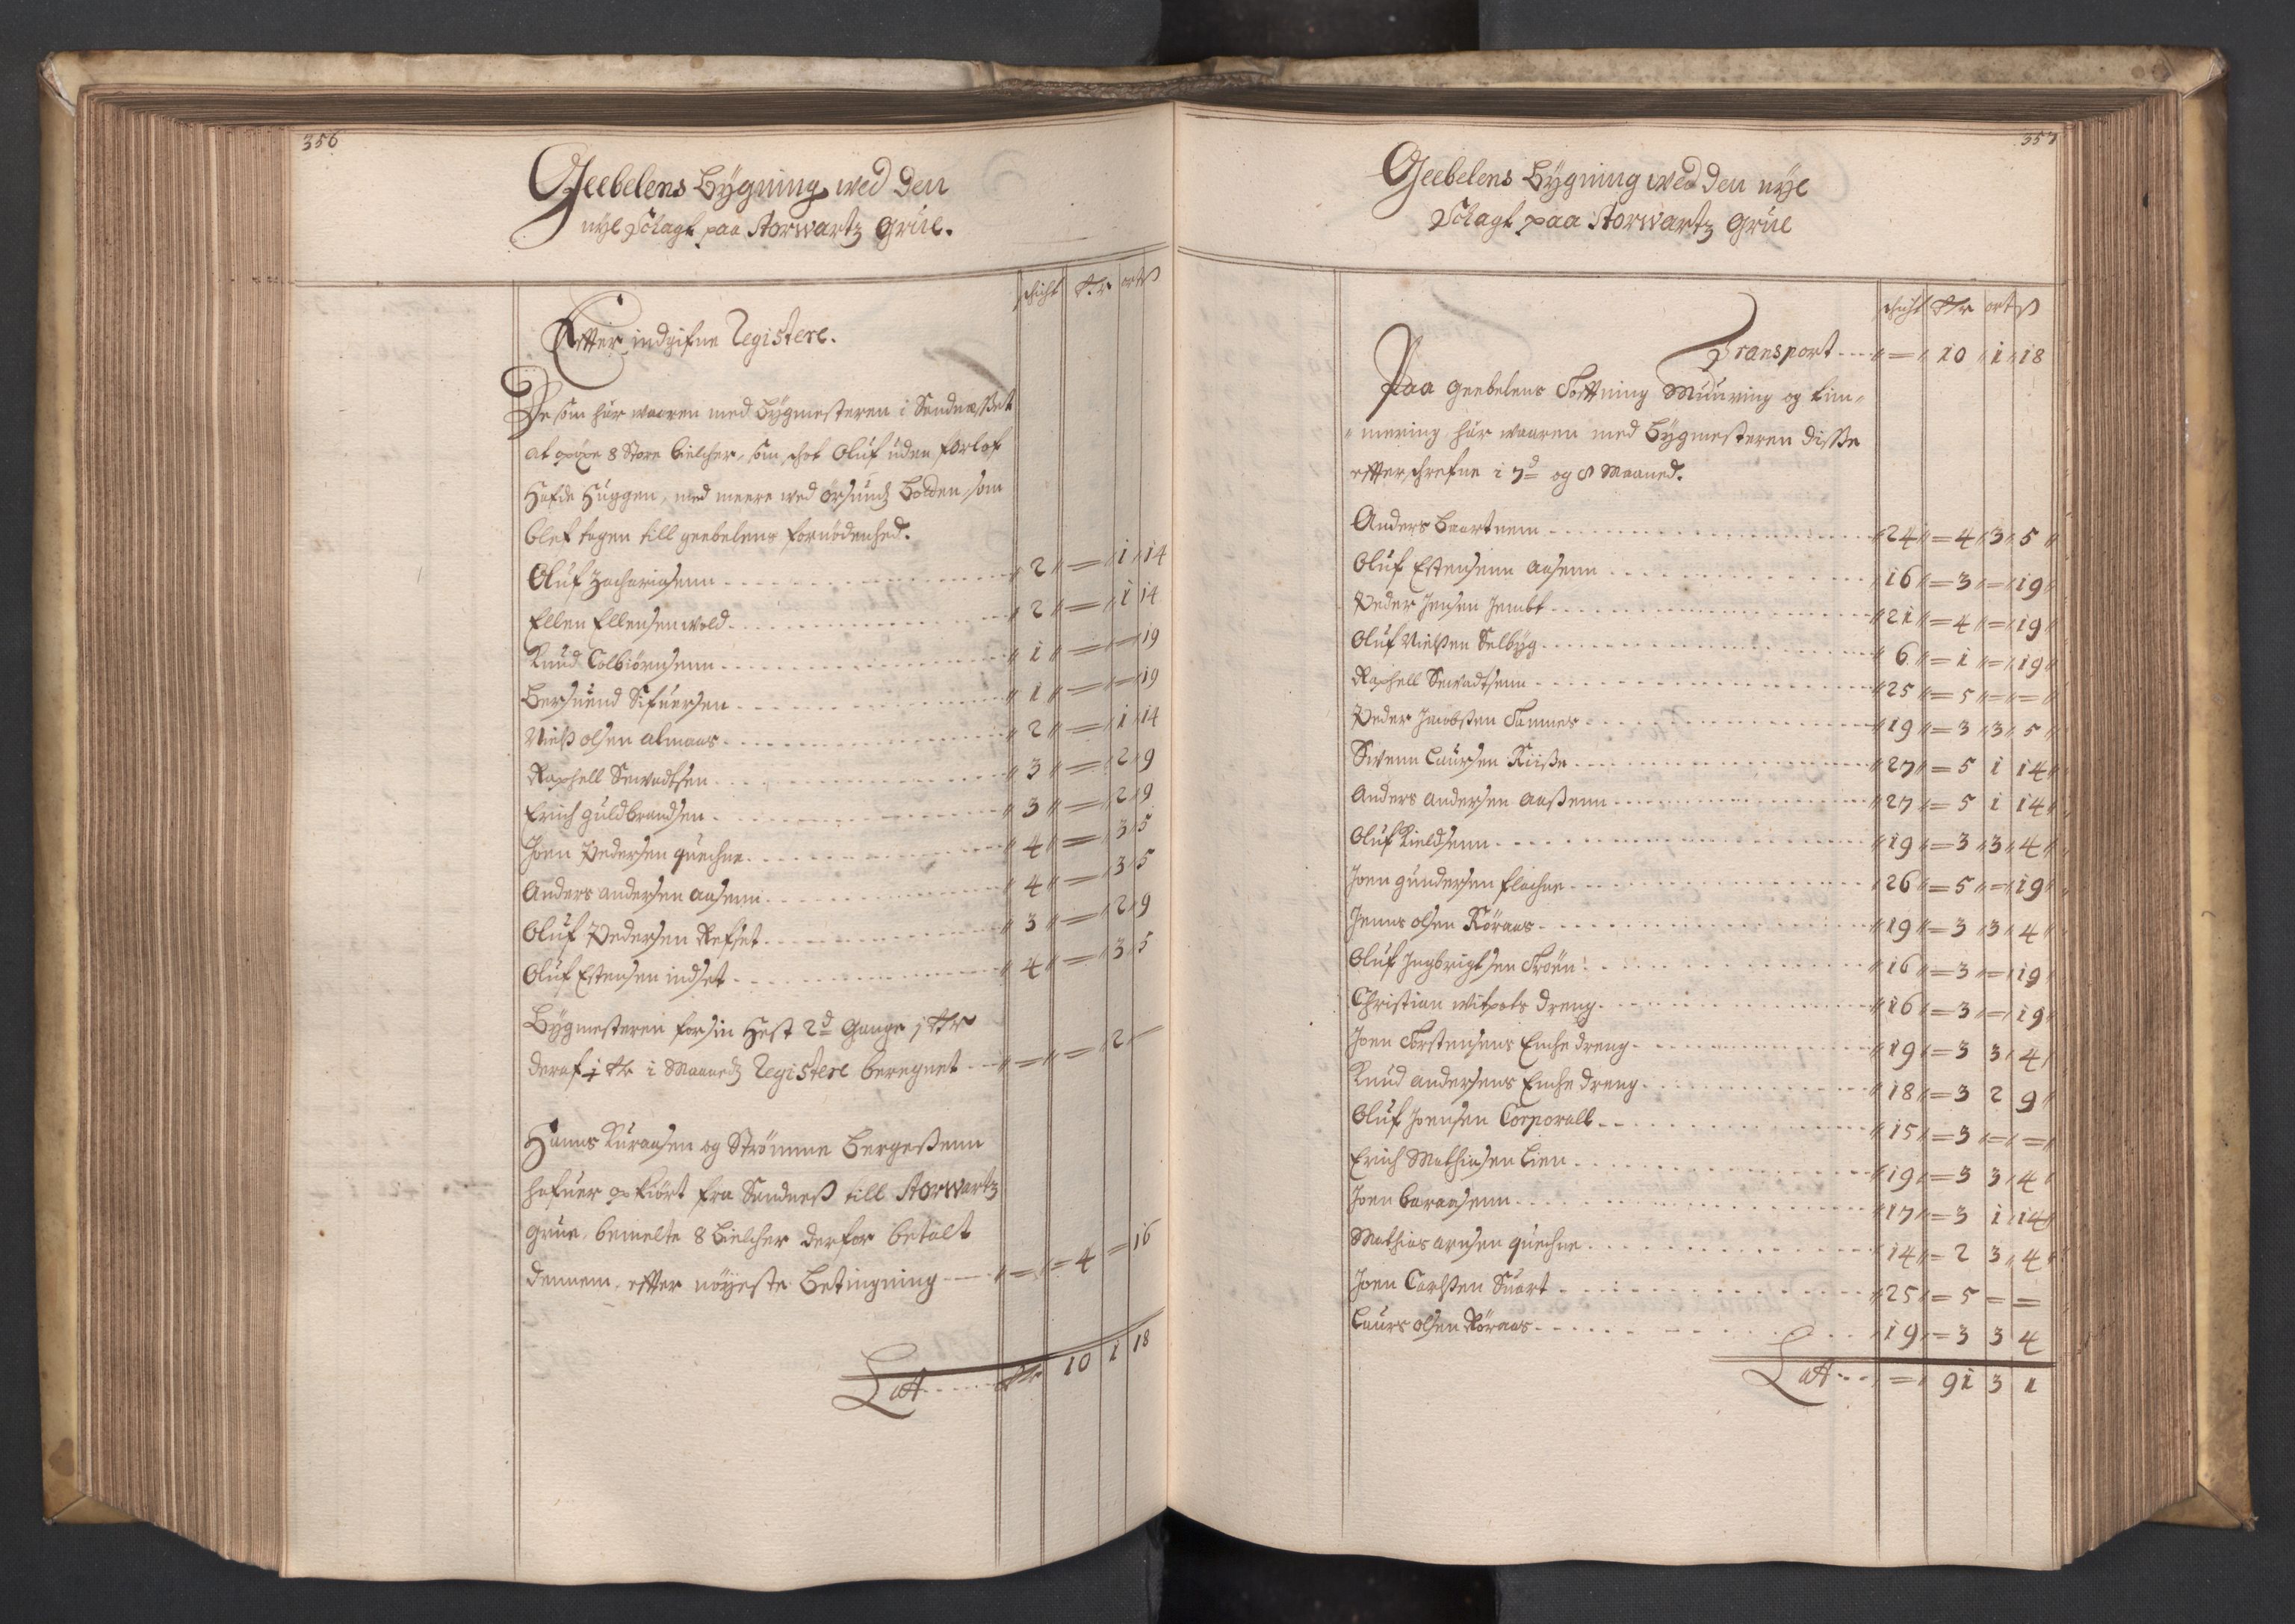 356
Geebelens bÿgning wed den
nÿe Schagt paa Storwartz Grue.
schicht rdr ort ß
Effter indgifne Registere.
De som har waaren med bÿgmesteren i Sendnæsset
at opøxe 8 Store bielcher, som schot Oluf uden forlof
Hafde Huggen, med meere wed Ørsundz bolden, som
blef tagen till geebelens fornödenhed.
Oluf Zachariasenn " 2 " = " 1 " 14
Ellen Ellensen wold " 2 " = " 1 14
Knud Colbiörnsenn " 1 " = " = 19
Bersuend Sifuersen " 1 " = " = 19
Nielß olsen almaas " 2 " = " 1 14
Raphell Sewadtsen " 3 " = " 2 " 9
Erich guldbrandsen " 3 " = " 2 " 9
Joen Pedersen quechne " 4 " = " 3 " 5
Anders andersen aasenn " 4 " = " 3 " 5
Oluf Pedersen Refset " 3 " = " 2 " 9
Oluf Estensen indset " 4 " = " 3 " 5
Bÿgmesteren for sin Hest 2d Gange j rdr
deraf ½ rdr i Maanedz Registere beregnet " = " = " 2 =
Hanns Kuraasen og Strömme Bergeßenn
hafuer op kiört fra Sendneß till Storwartz
grue, bemelte 8 Bielcher derfor betalt
dennem, effter nöÿeste Betingning " = " = 4 = 16
Latt rdr 10 1 18
357
Geebelens bÿgning wed den nÿe
Schagt paa Storwartz Grue
schicht rdr ort ß
Transport " = " 10 " 1 " 18
Paa geebelens Tofftning Muuring og tim¬
mering har waaren med bÿgmesteren disse
effterschrefne i 7d og 8 Maaned.
Anders baartnem " 24 " = 4 " 3 " 5 "
Oluf Estensenn aasenn " 16 " = 3 " = " 19 "
Peder Jensen Jembt " 21 " = 4 " = " 19 "
Oluf Nielßen Selbÿg " 6 " = 1 " = " 19 "
Raphell Sewadtsenn " 25 " = 5 " = " = "
Peder Jacobßen Tamnes " 19 " = 3 " 3 " 5 "
Swenn Laursen Riiße " 27 " = 5 1 14 "
Anders andersen aaßenn " 27 " = 5 1 14 "
Oluf Kieldsenn " 19 " = 3 " 3 " 4 "
Joen gundersen flachne " 26 " = 5 " = " 19 "
Jenns olsen Röraas " 19 " = 3 " 3 " 4 "
Oluf Jngbrigtsen Troën " 16 " = 3 " = " 19 "
Christian witpots dreng " 16 " = 3 " = " 19 "
Joen Torstensens Enche dreng " 19 " = 3 3 " 4 "
Knud andersens Enche dreng " 18 " = 3 2 9 "
Oluf Joensen Corporall " 15 " = 3 " = " = "
Erich Mathiasen Lien " 19 " = 3 3 " 4 "
Joen baraasenn " 17 " = 3 1 " 14
Mathias arnsen quechne " 14 " = 2 3 " 4 "
Joen Carlßen Suart " 25 " = 5 = =
Laurs olsen Röraas " 19 " = 3 3 4
Latt " = " 91 3 1